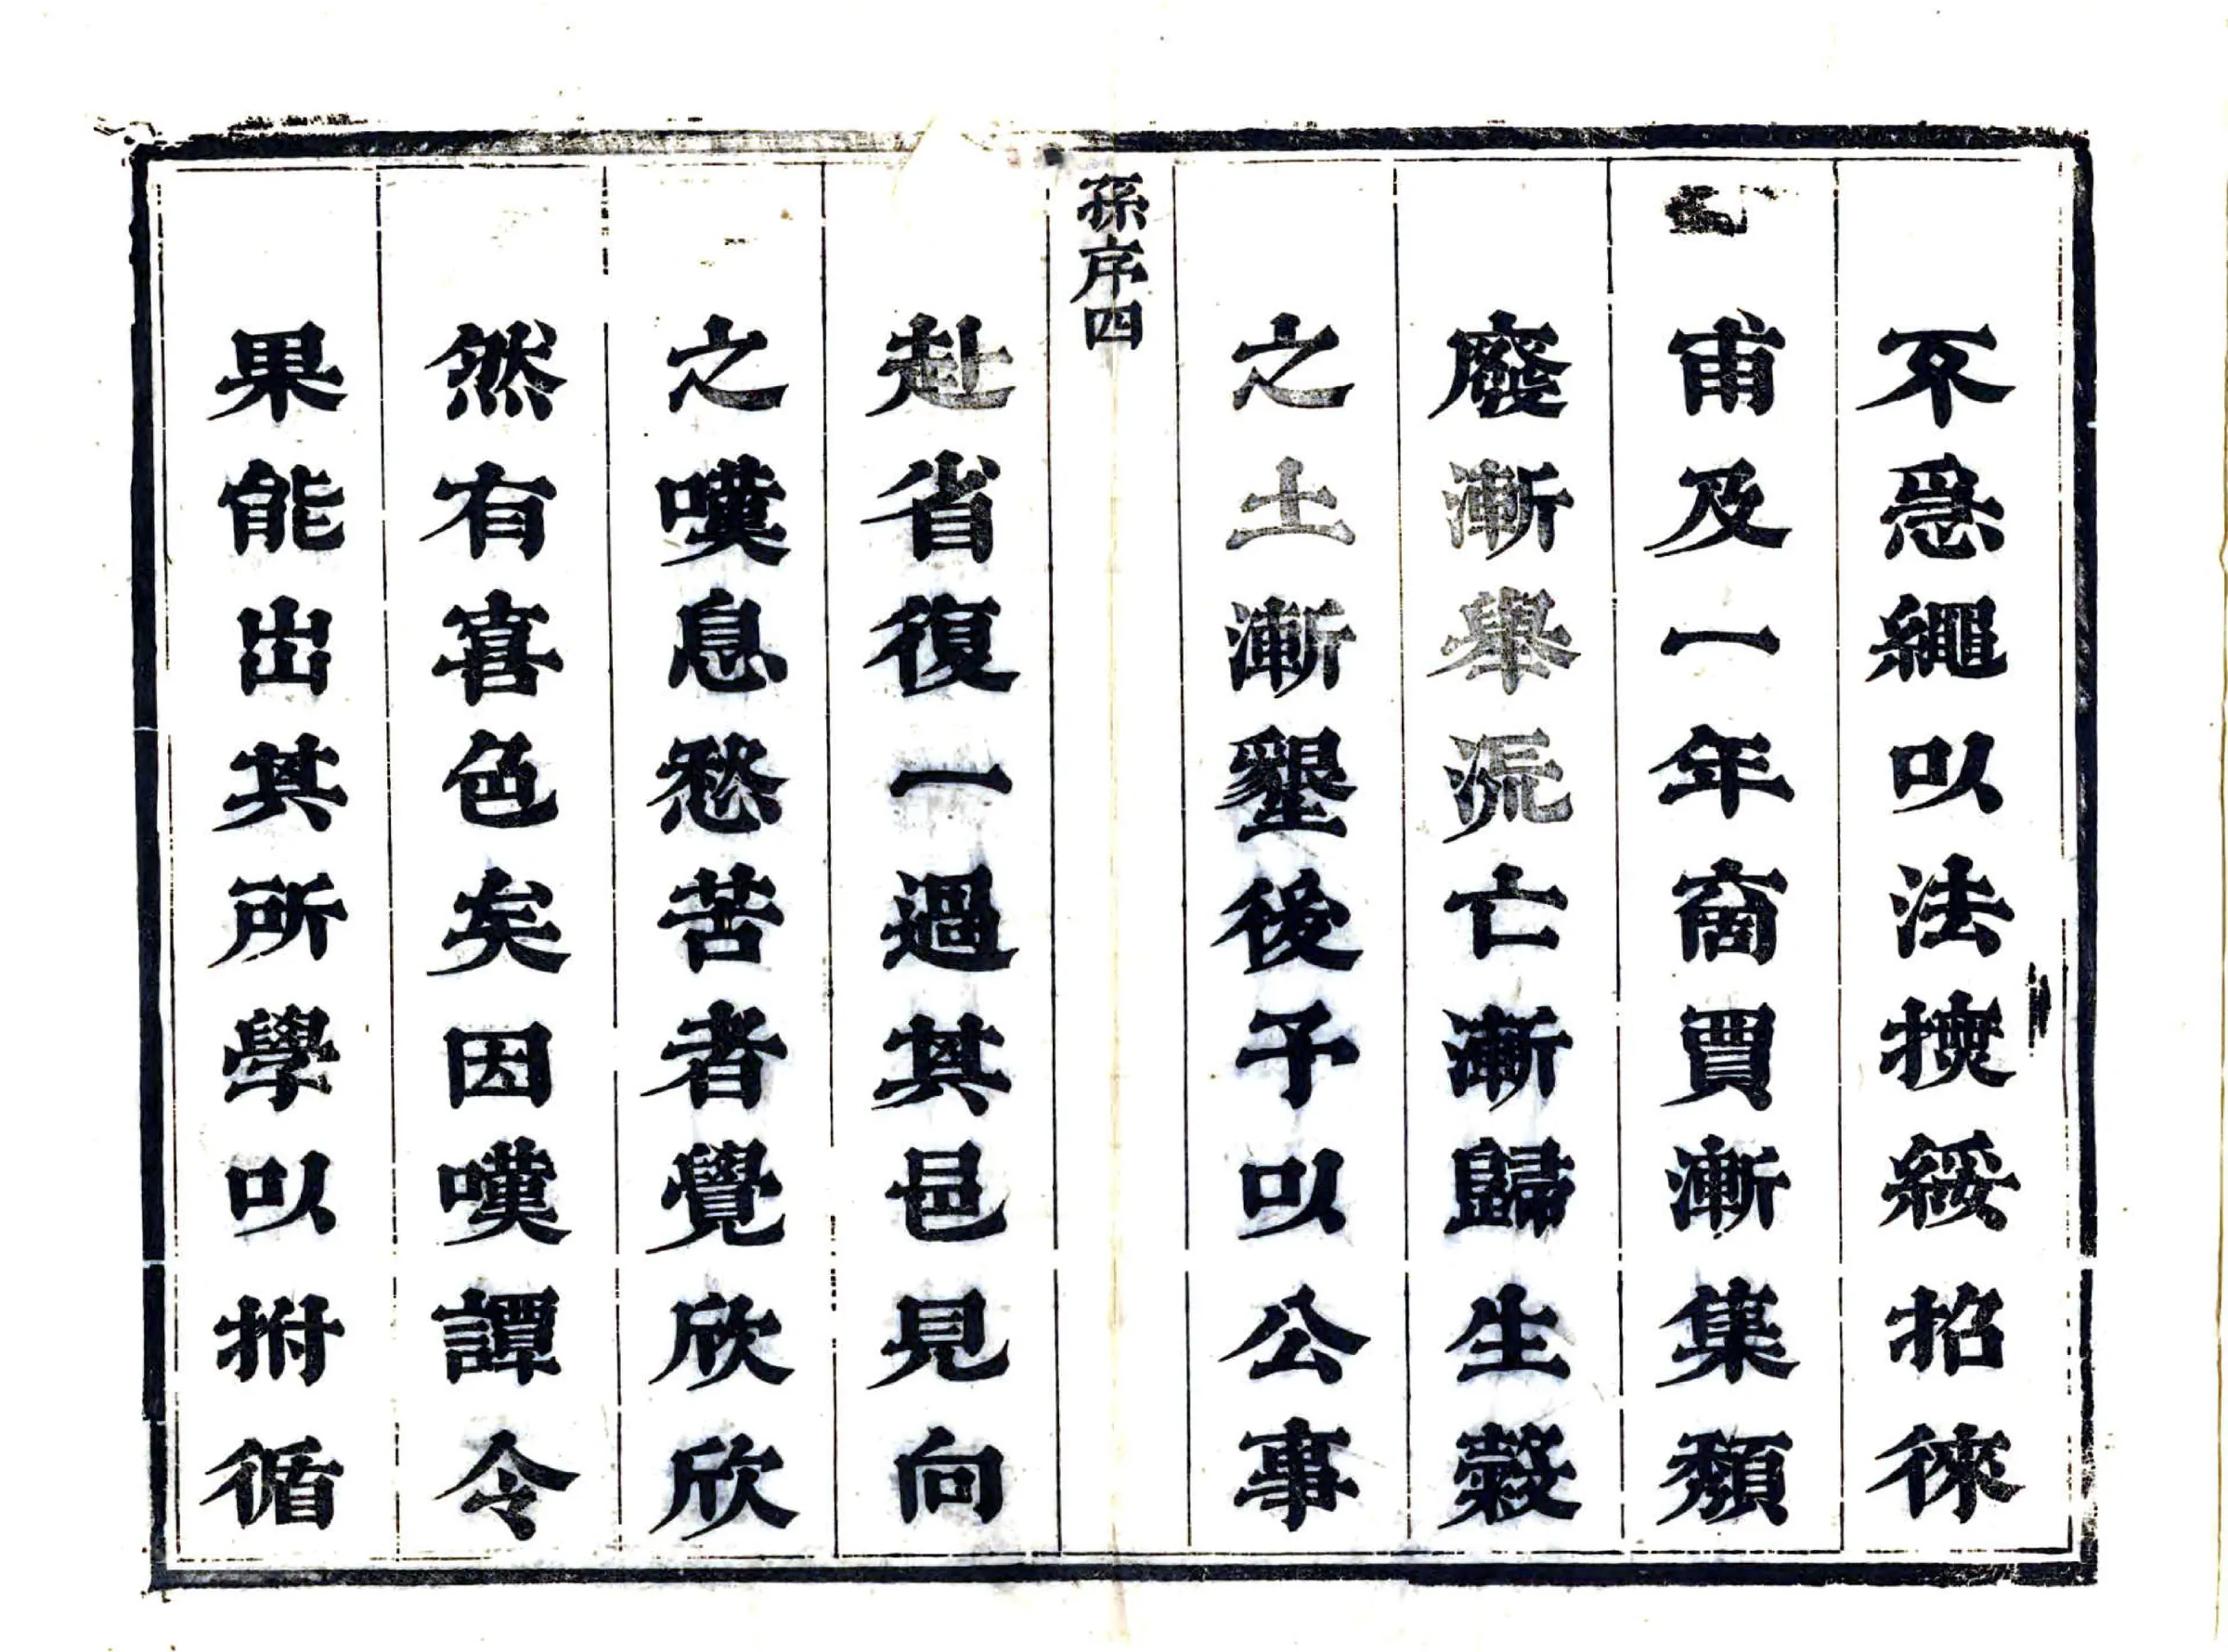 不急繩以法撫綏招徠
甫及一年商賈漸集頹
廢漸舉流亡漸歸生穀
之土漸墾後予以公事
孫序四
赴省復一過其邑見向
之嘆息愁苦者覺欣欣
然有喜色矣因嘆譚令
果能出其所學以拊循